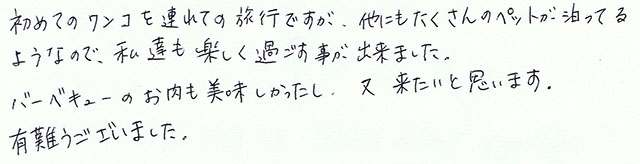 初めてのワンコを連れての旅行ですが、他にもたくさんのペットが泊ってる
ようなので、私達も楽しく過ごす事が出来ました。
バーベキューのお肉も美味しかったし、又来たいと思います。
有難うございました。